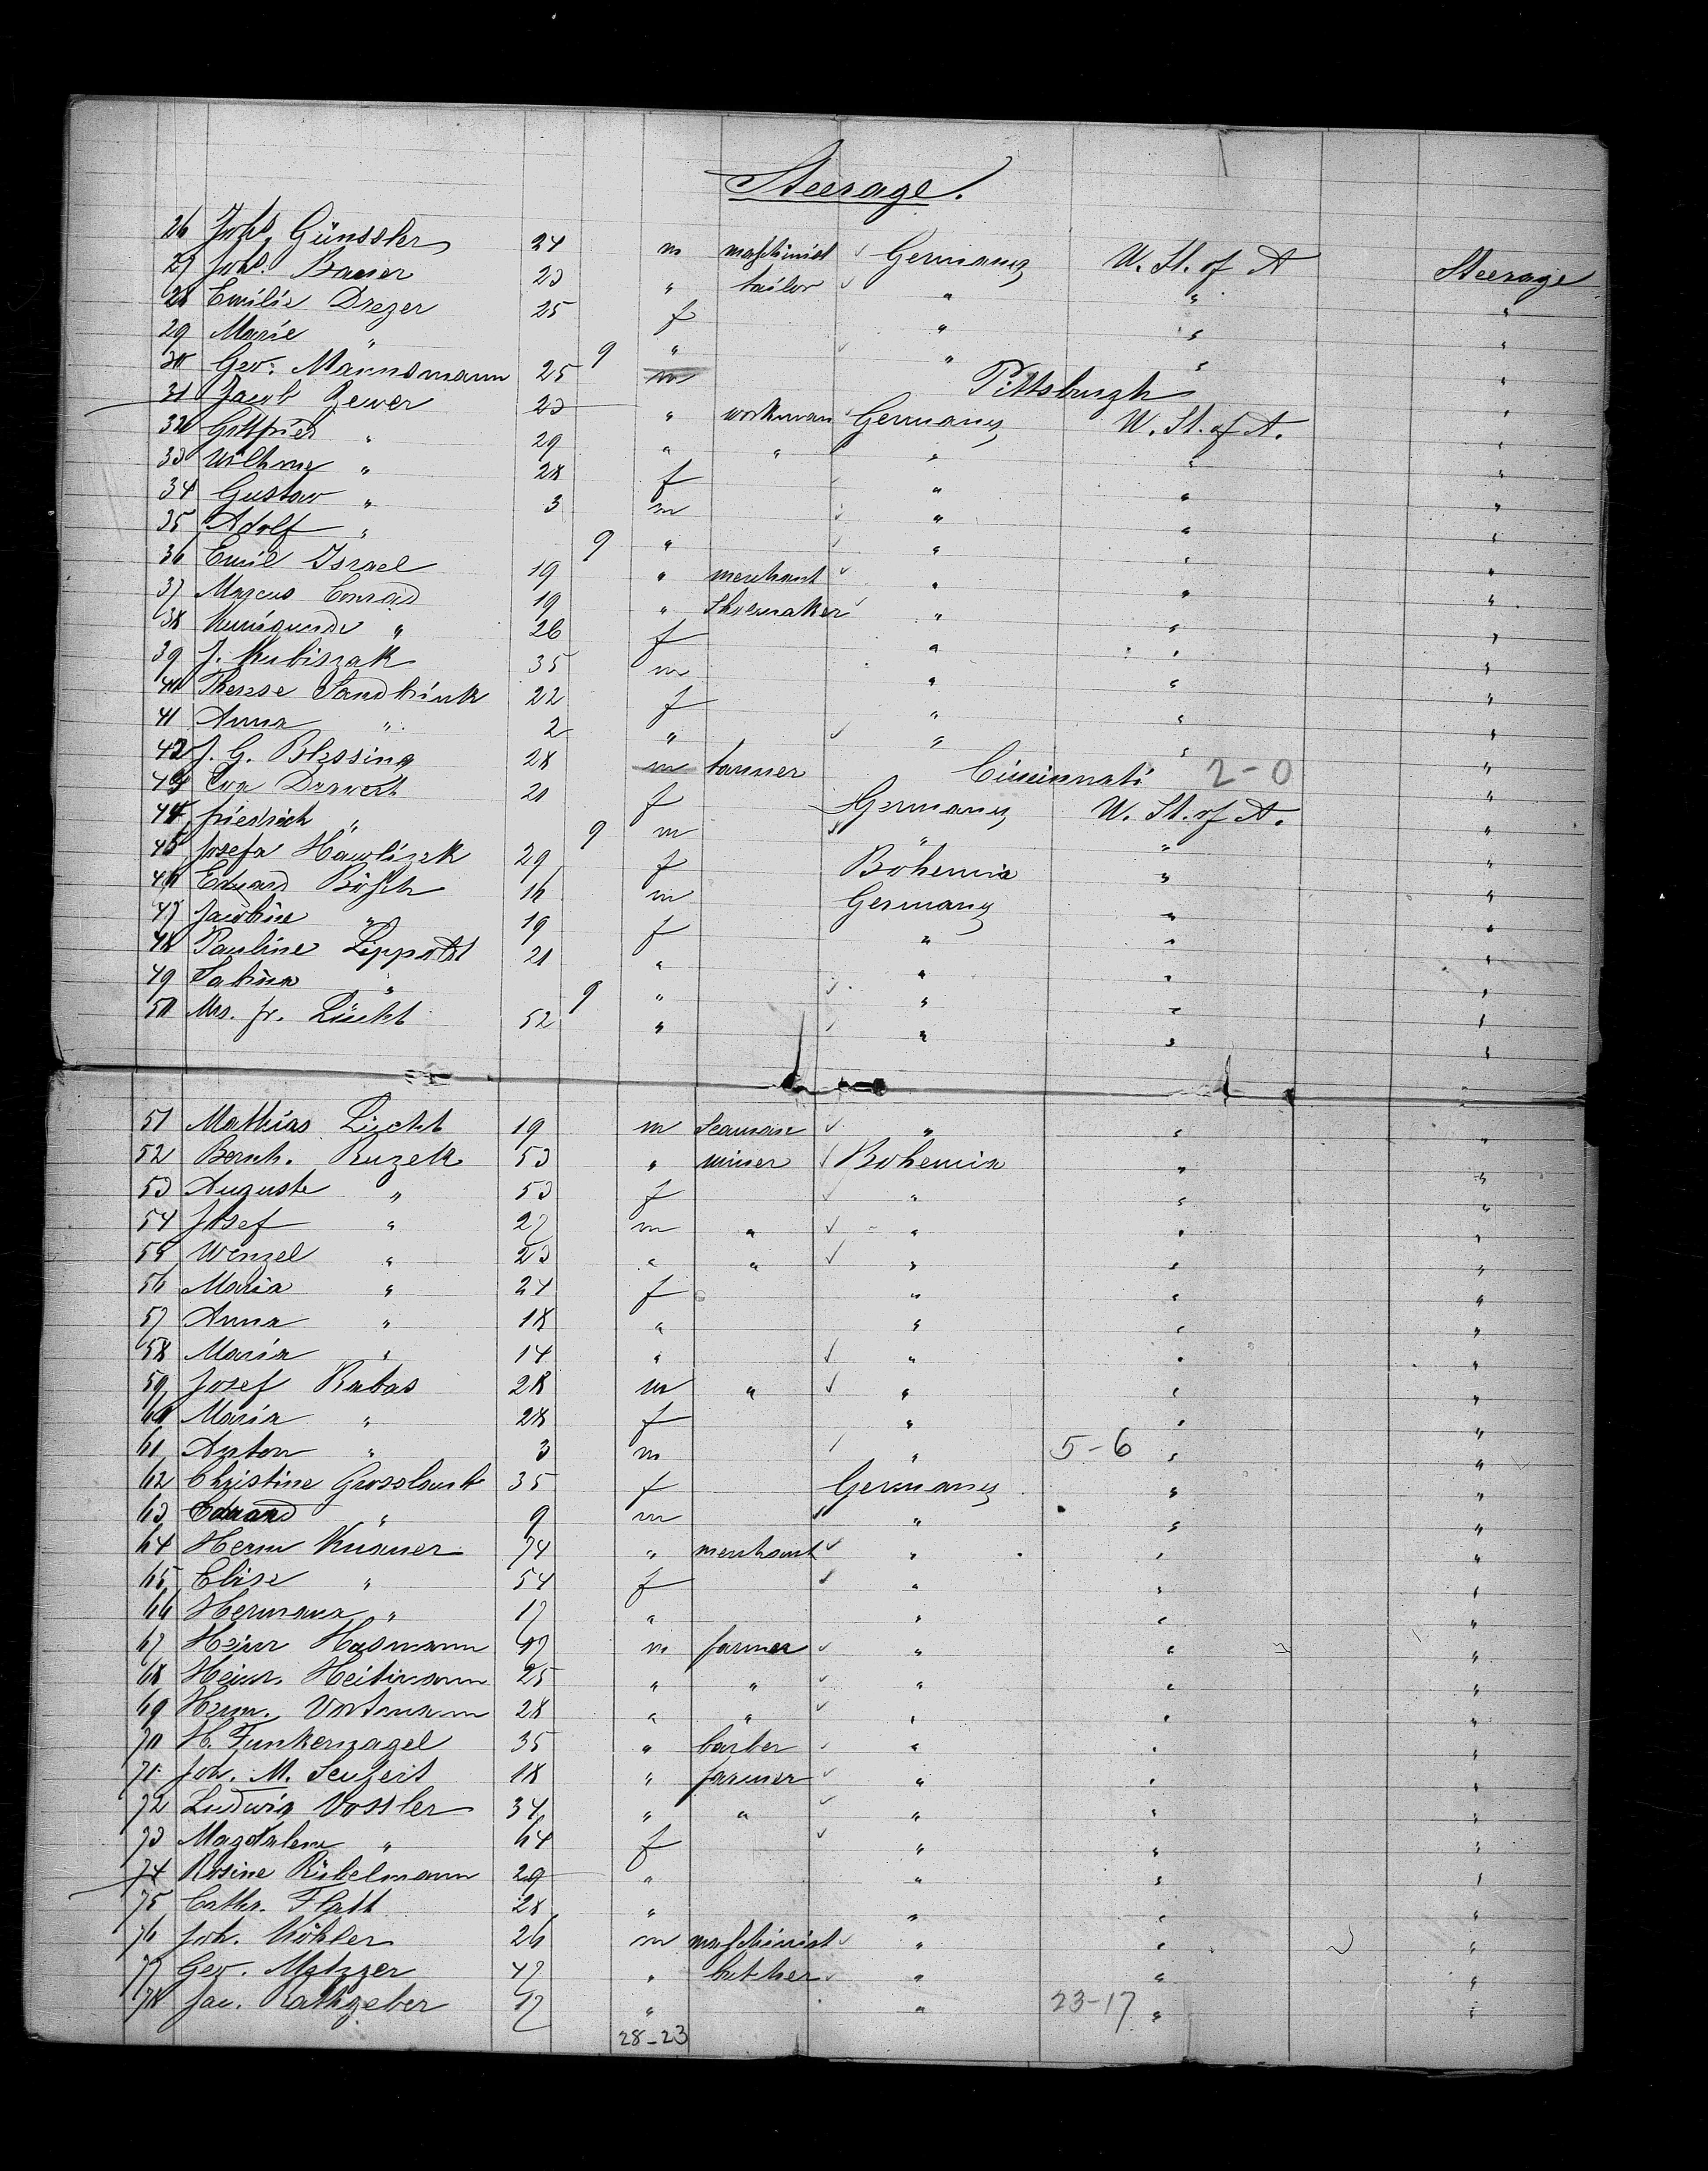 Steerage.
26 Johs. Günssler 24 m maschinist ✓ Germany U. St. of A Steerage
27 Johs. Bauer 23 " tailor ✓ " " "
28 Emilie Drezer 25 f " " "
29 Marie " 9 " ✓ " " "
30 Geo: Mannsmann 25 m Pittsburgh "
31 Jacob Zewer 23 " workman ✓ Germany U. St. of A. "
32 Gottfried " 29 " " " " "
33 Wilhme " 28 f ✓ " " "
34 Gustav " 3 m ✓ " " "
35 Adolf " 9 " ✓ " " "
36 Emil Israel 19 " merchant ✓ " " "
37 Marcus Conrad 19 " Shoemaker ✓ " " "
38 Kunigunde " 26 f " " "
39 J. Kubiszak 35 m " " "
40 Therese Sandbink 22 f " " "
41 Anna " 2 " ✓ " " "
42 J. G. Blessing 28 m tanner Cincinnati 2-0 "
43 Eva Drawert 21 f Germany U. St. of A. "
44 Friedrich " 9 m ✓ " " "
45 Josefa Hawlizek 29 f Bohemia " "
46 Eduard Bösch 16 m Germany " "
47 Jacobine " 19 f " " "
48 Pauline Lippoldt 21 " " " "
49 Sabina " 9 " ✓ " " "
50 Mrs. Fr. Lücht 52 " ✓ " " "
51 Mathias Lücht 19 m Seaman ✓ " " "
52 Bernh. Ruzek 53 " miner ✓ Bohemia " "
53 Auguste " 53 f ✓ " " "
54 Josef " 27 m " ✓ " " "
55 Wenzel " 23 " " ✓ " " "
56 Maria " 24 f " " "
57 Anna " 18 " " " "
58 Maria " 14 " ✓ " " "
59 Josef Rabas 28 m " ✓ " " "
60 Maria " 28 f " " "
61 Anton " 3 m ✓ " 5-6 " "
62 Christine 35 f Germany " "
63 Eduard " 9 m ✓ " " "
64 Herm Knauer 74 " merchant ✓ " " "
65 Elise " 54 f ✓ " " "
66 Hermana " 17 " " " "
67 Heinr Hasmann 47 m farmer ✓ " " "
68 Heinr. Heitmann 25 " " ✓ " " "
69 Herm. Vortmann 28 " " ✓ " " "
70 H. Funkernagel 35 " barber ✓ " " "
71 Joh. M. Seufert 18 " farmer ✓ " " "
72 Ludwig Vossler 34 " " ✓ " " "
73 Magdalene " 64 f ✓ " " "
74 Rosine Rübelmann 29 " " " "
75 Cathr. Flatt 28 " " " "
76 Joh. Köhler 26 m maschinist ✓ " " "
77 Geo. Metzger 47 " butcher ✓ " " "
78 Jac. Rathgeber 17 " " 23-17 " "
28-23